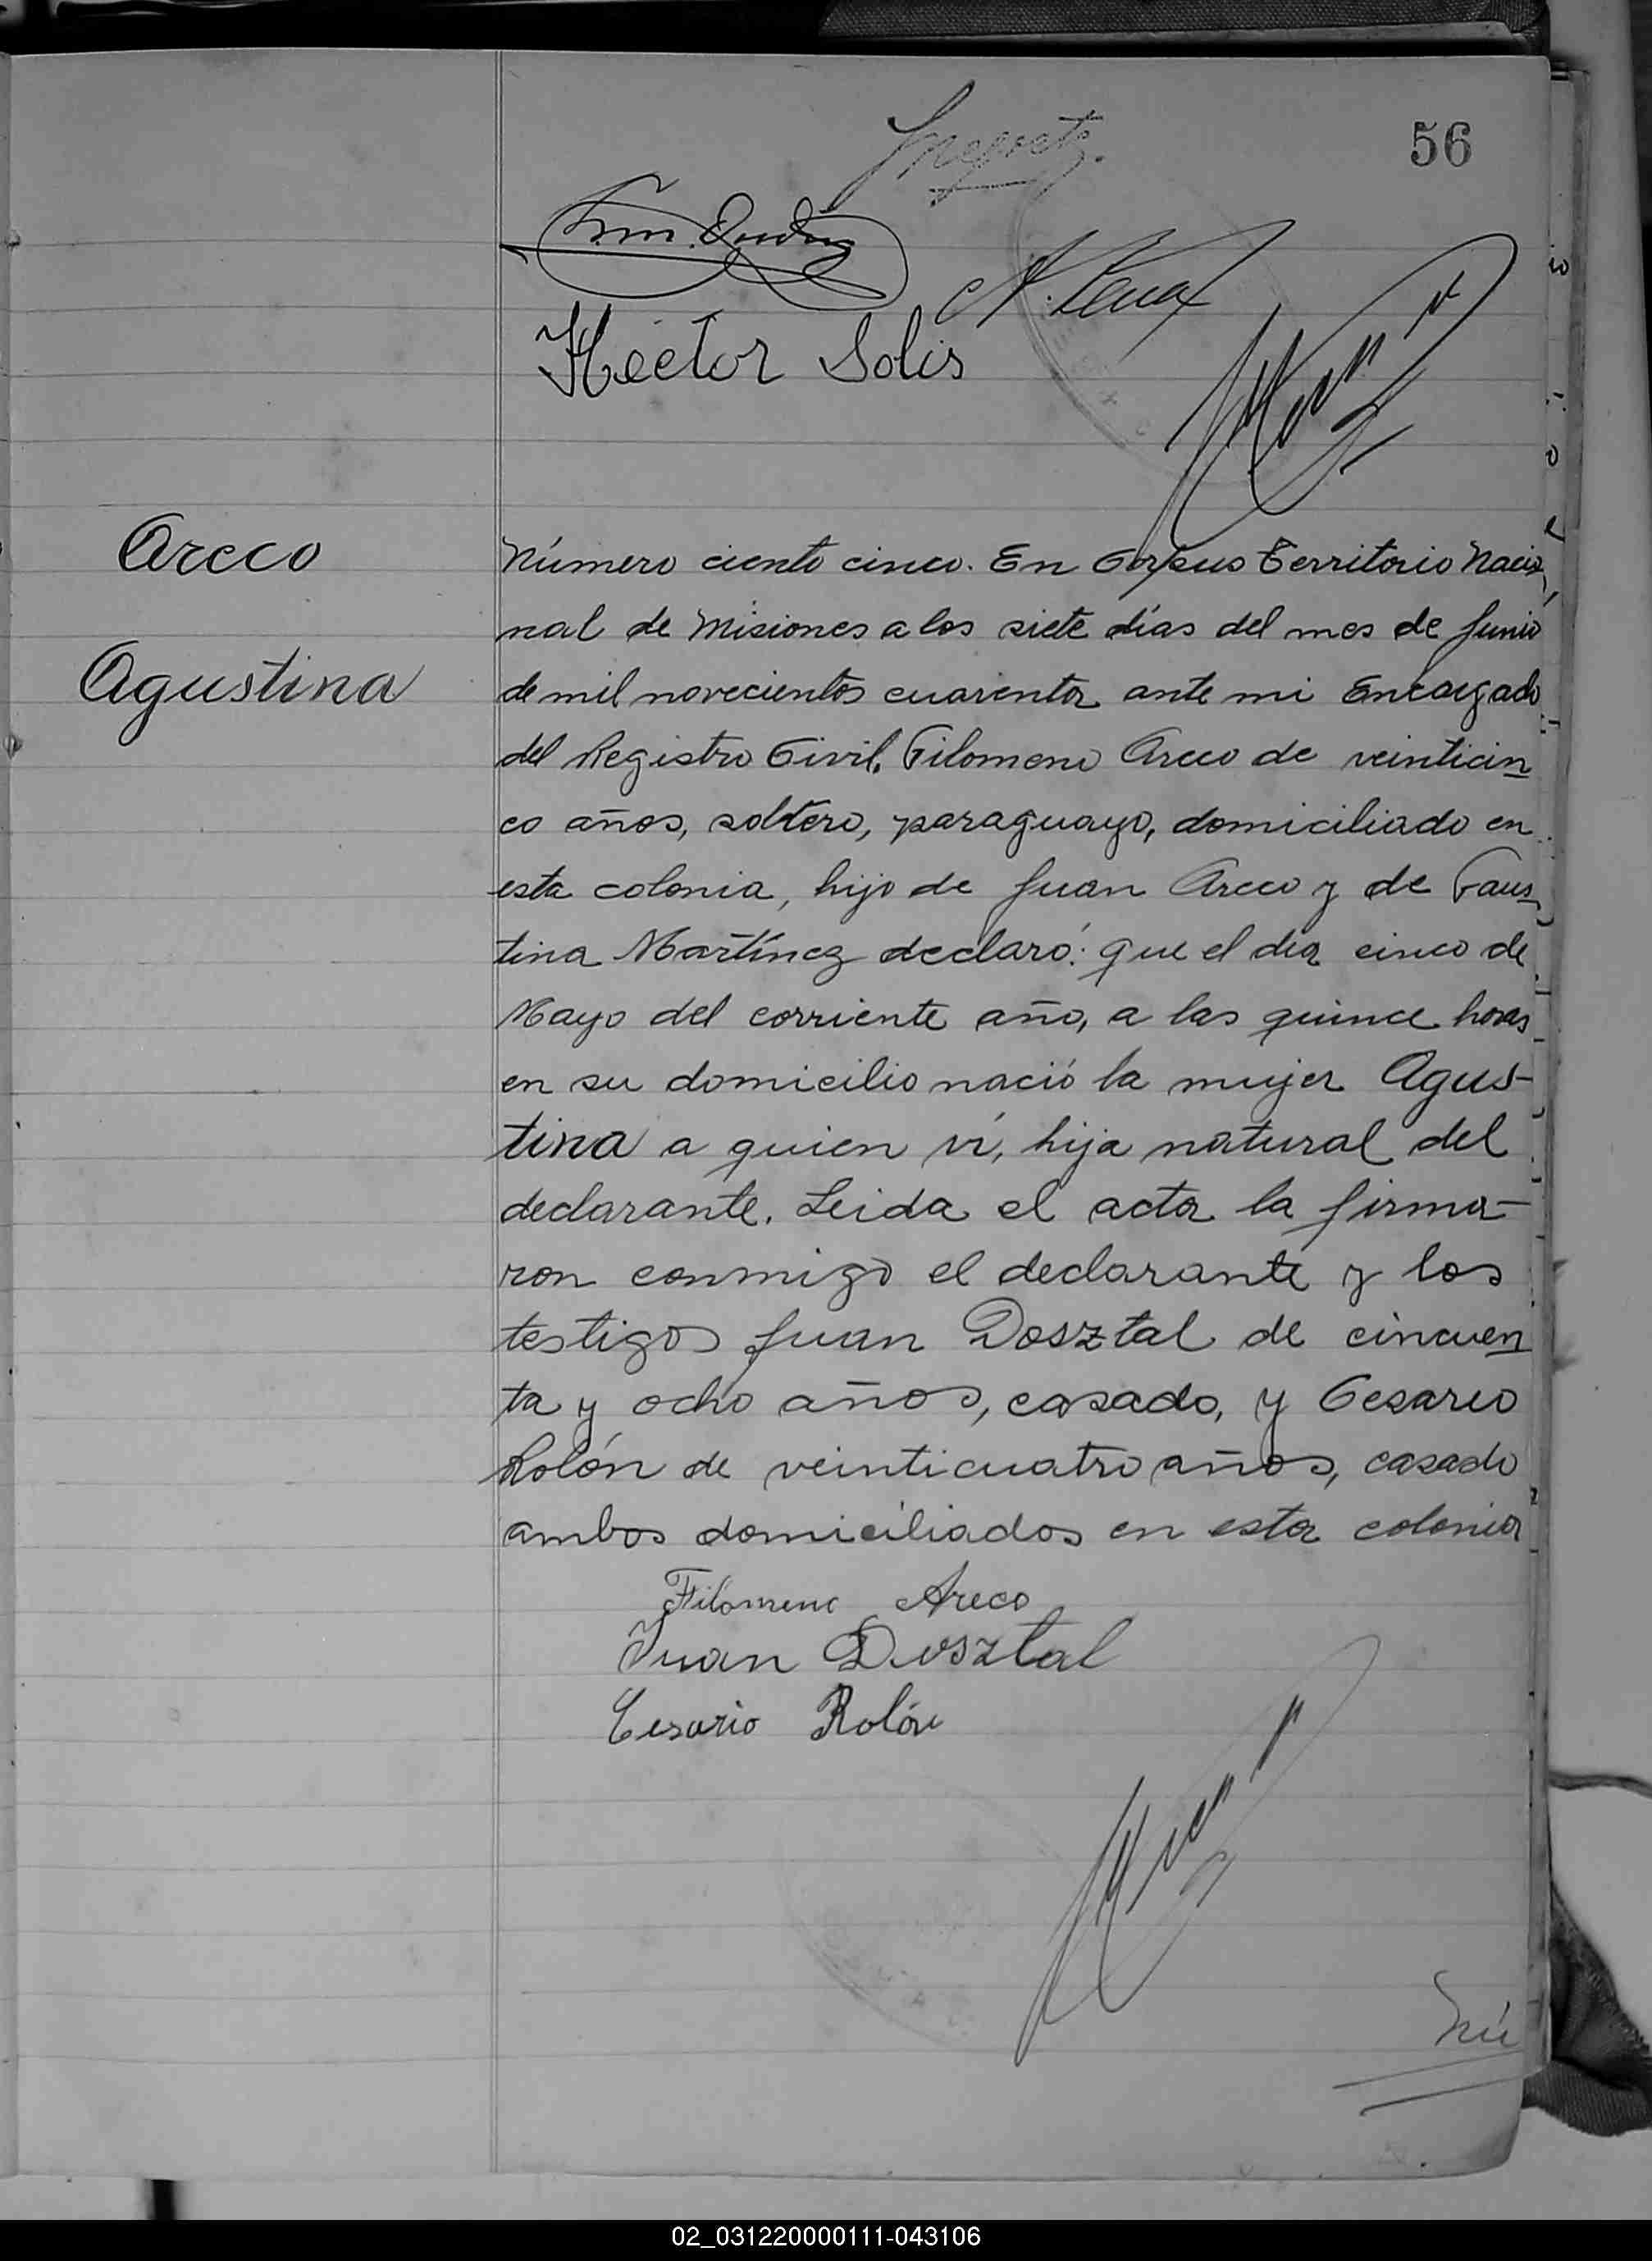 56
Hector Solis
Areco
Agustina
Número ciento cinco. En Corpus Territorio Nacio
nal de Misiones a los siete días del mes de Junio
de mil novecientos cuarenta ante mi Encargado
del Registro Civil, Filomeno Areco de veinticin
co años, soltero, paraguayo, domiciliado en
esta colonia, hijo de Juan Areco y de Faus
tina Martínez declaró: que el dia cinco de
Mayo del corriente año, a las quince horas
en su domicilio nació la mujer Agus-
tina a quien ví, hija natural del
declarante. Leida el acta la firma-
ron conmigo el declarante y los
testigos Juan Dosztal de cincuen
ta y ocho años, casado, y Cesareo
Rolón de veinticuatro años, casado
ambos domiciliados en esta colonia
Filomeno Areco
Juan Dosztal
Cesario Rolón
Nú
02_031220000111-043106